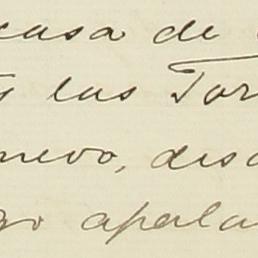 casa de
las Tor
nuevo, dis
go apala